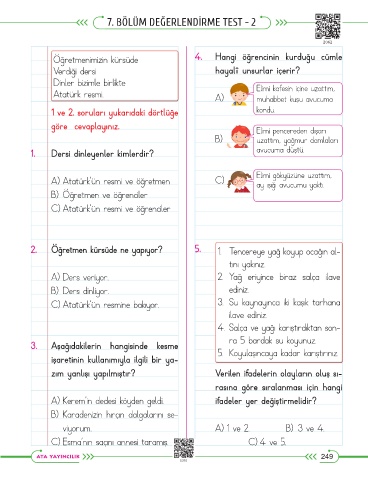 7. BÖLÜM DEĞERLENDİRME TEST - 2
Öğretmenimizin kürsüde
Verdiği dersi
Dinler bizimle birlikte
Atatürk resmi.
1 ve 2. soruları yukarıdaki dörtlüğe
göre cevaplayınız.
1. Dersi dinleyenler kimlerdir?
A) Atatürk'ün resmi ve öğretmen.
B) Öğretmen ve öğrenciler.
C) Atatürk'ün resmi ve öğrenciler.
2. Öğretmen kürsüde ne yapıyor?
A) Ders veriyor.
B) Ders dinliyor.
C) Atatürk'ün resmine bakıyor.
3. Aşağıdakilerin hangisinde kesme
işaretinin kullanımıyla ilgili bir ya-
zım yanlışı yapılmıştır?
A) Kerem'in dedesi köyden geldi.
B) Karadenizin hırçın dalgalarını se-
viyorum.
C) Esma'nın saçını annesi taramış.
4. Hangi öğrencinin kurduğu cümle
hayalî unsurlar içerir?
A)
Elimi kafesin içine uzattım,
muhabbet kuşu avucuma
kondu.
B)
Elimi pencereden dışarı
uzattım, yağmur damlaları
avucuma düştü.
C)
Elimi gökyüzüne uzattım,
ay ışığı avucumu yaktı.
5. 1. Tencereye yağ koyup ocağın al-
tını yakınız.
2. Yağ eriyince biraz salça ilave
ediniz.
3. Su kaynayınca iki kaşık tarhana
ilave ediniz.
4. Salça ve yağı karıştırdıktan son-
ra 5 bardak su koyunuz.
5. Koyulaşıncaya kadar karıştırınız.
Verilen ifadelerin olayların oluş sı-
rasına göre sıralanması için hangi
ifadeler yer değiştirmelidir?
A) 1 ve 2. B) 3 ve 4.
C) 4 ve 5.
ATA YAYINCILIK
249